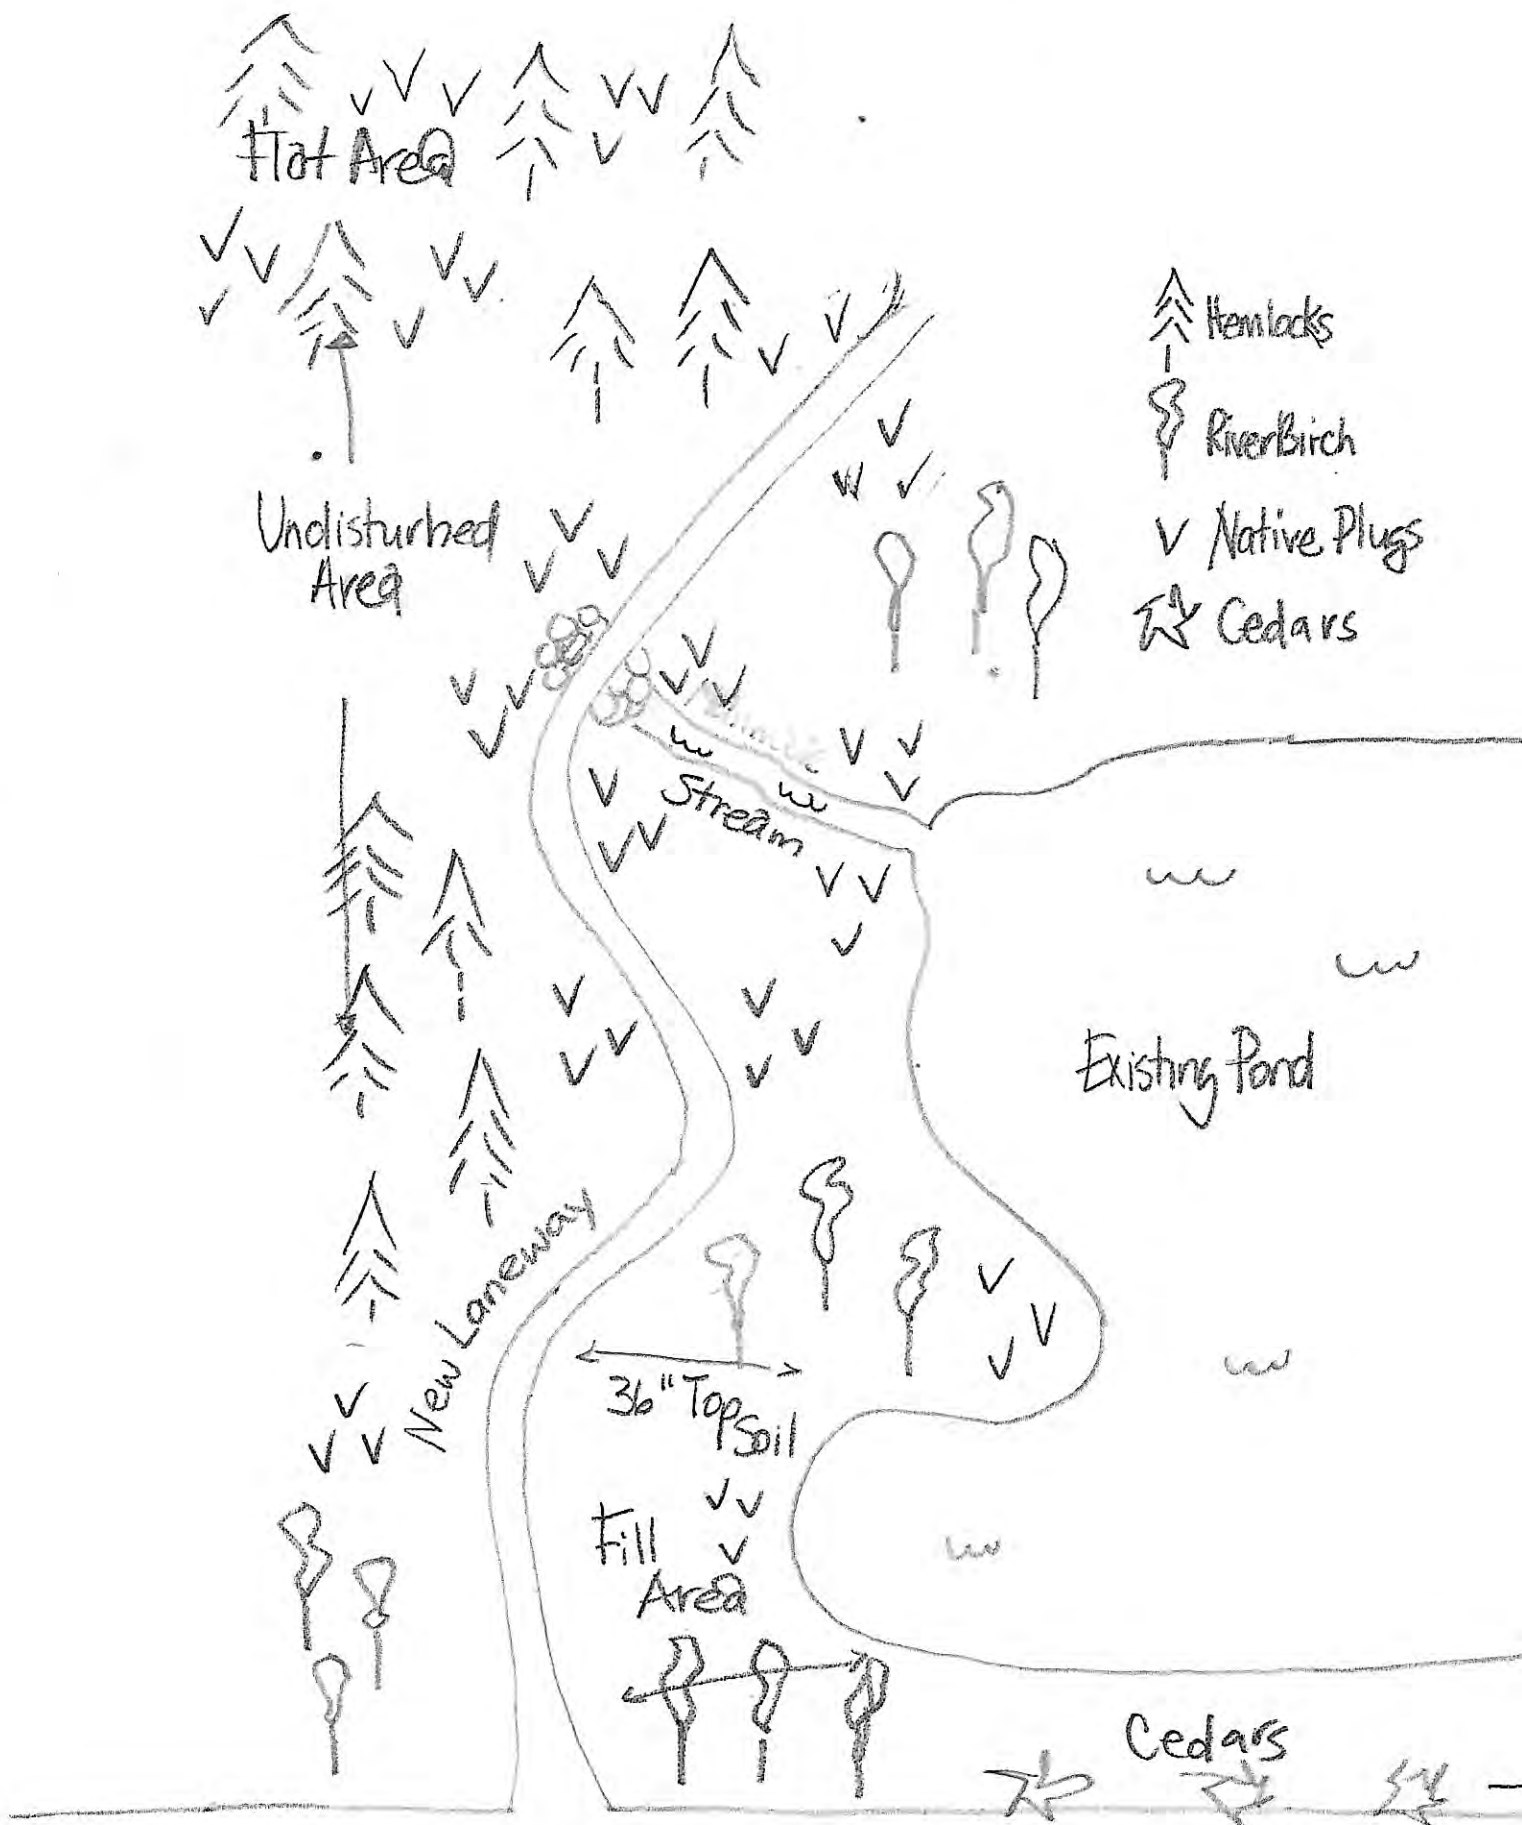 Flat Area
Hemlocks
RiverBirch
Native Plugs
Cedars
Undisturbed
Area
Stream
Existing Pond
New Laneway
36" Top Soil
Fill
Area
Cedars